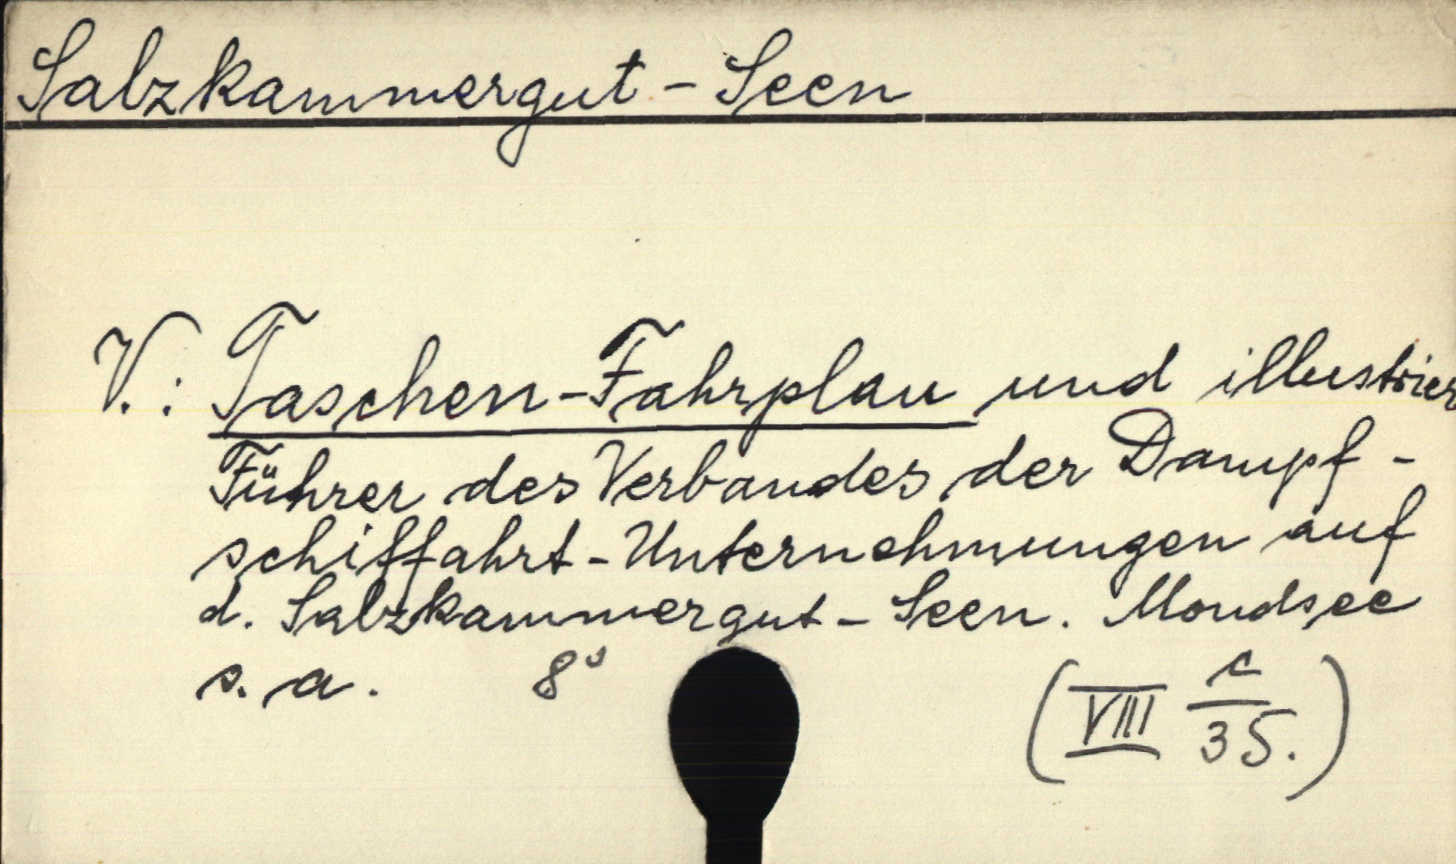 Salzkammergut - Seen
V.: Taschen-Fahrplan und illustrier
Führer des Verbandes der Dampf-
schiffahrt-Unternehmungen auf
d. Salzkammergut - Seen. Mondsee
s. a. 8°
(VIII c/35.)